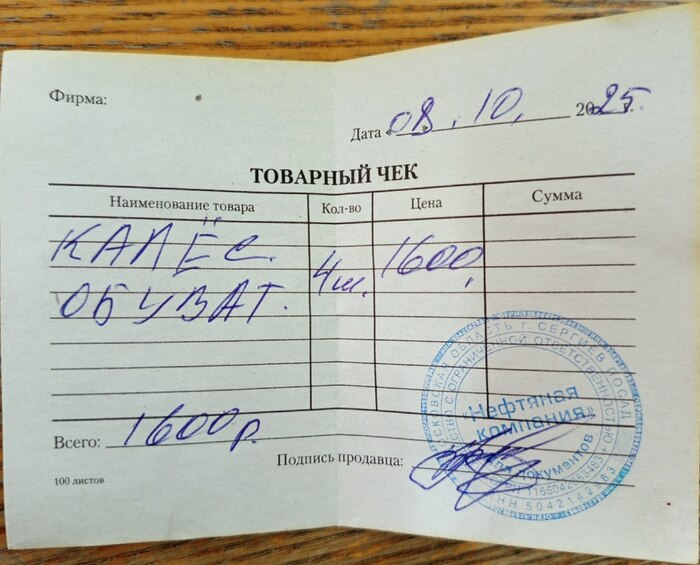 Фирма:
Дата « 08 » . 10. 2025 г.
ТОВАРНЫЙ ЧЕК
Наименование товара Кол-во Цена Сумма
КАЛЁС. 4ш. 1600,
ОБУВАТ.
Всего: 1600р.
Подпись продавца:
100 листов
МОСКОВСКАЯ ОБЛАСТЬ г. СЕРГИЕВ ПОСАД
ОБЩЕСТВО С ОГРАНИЧЕННОЙ ОТВЕТСТВЕННОСТЬЮ
«Нефтяная
компания»
Для документов